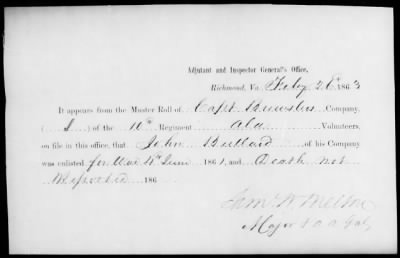 Adjutant and Inspector General's Office,
Richmond, Va. Feby 26 1863
It appears from the Muster Roll of Capt Brewsters Company,
( I ) of the 10th Regiment Ala Volunteers,
on file in this office, that John Bullard of his Company
was enlisted for War 4th June 1861, and Death not
Reported 186
Saml W Melton
Major & a a Genl